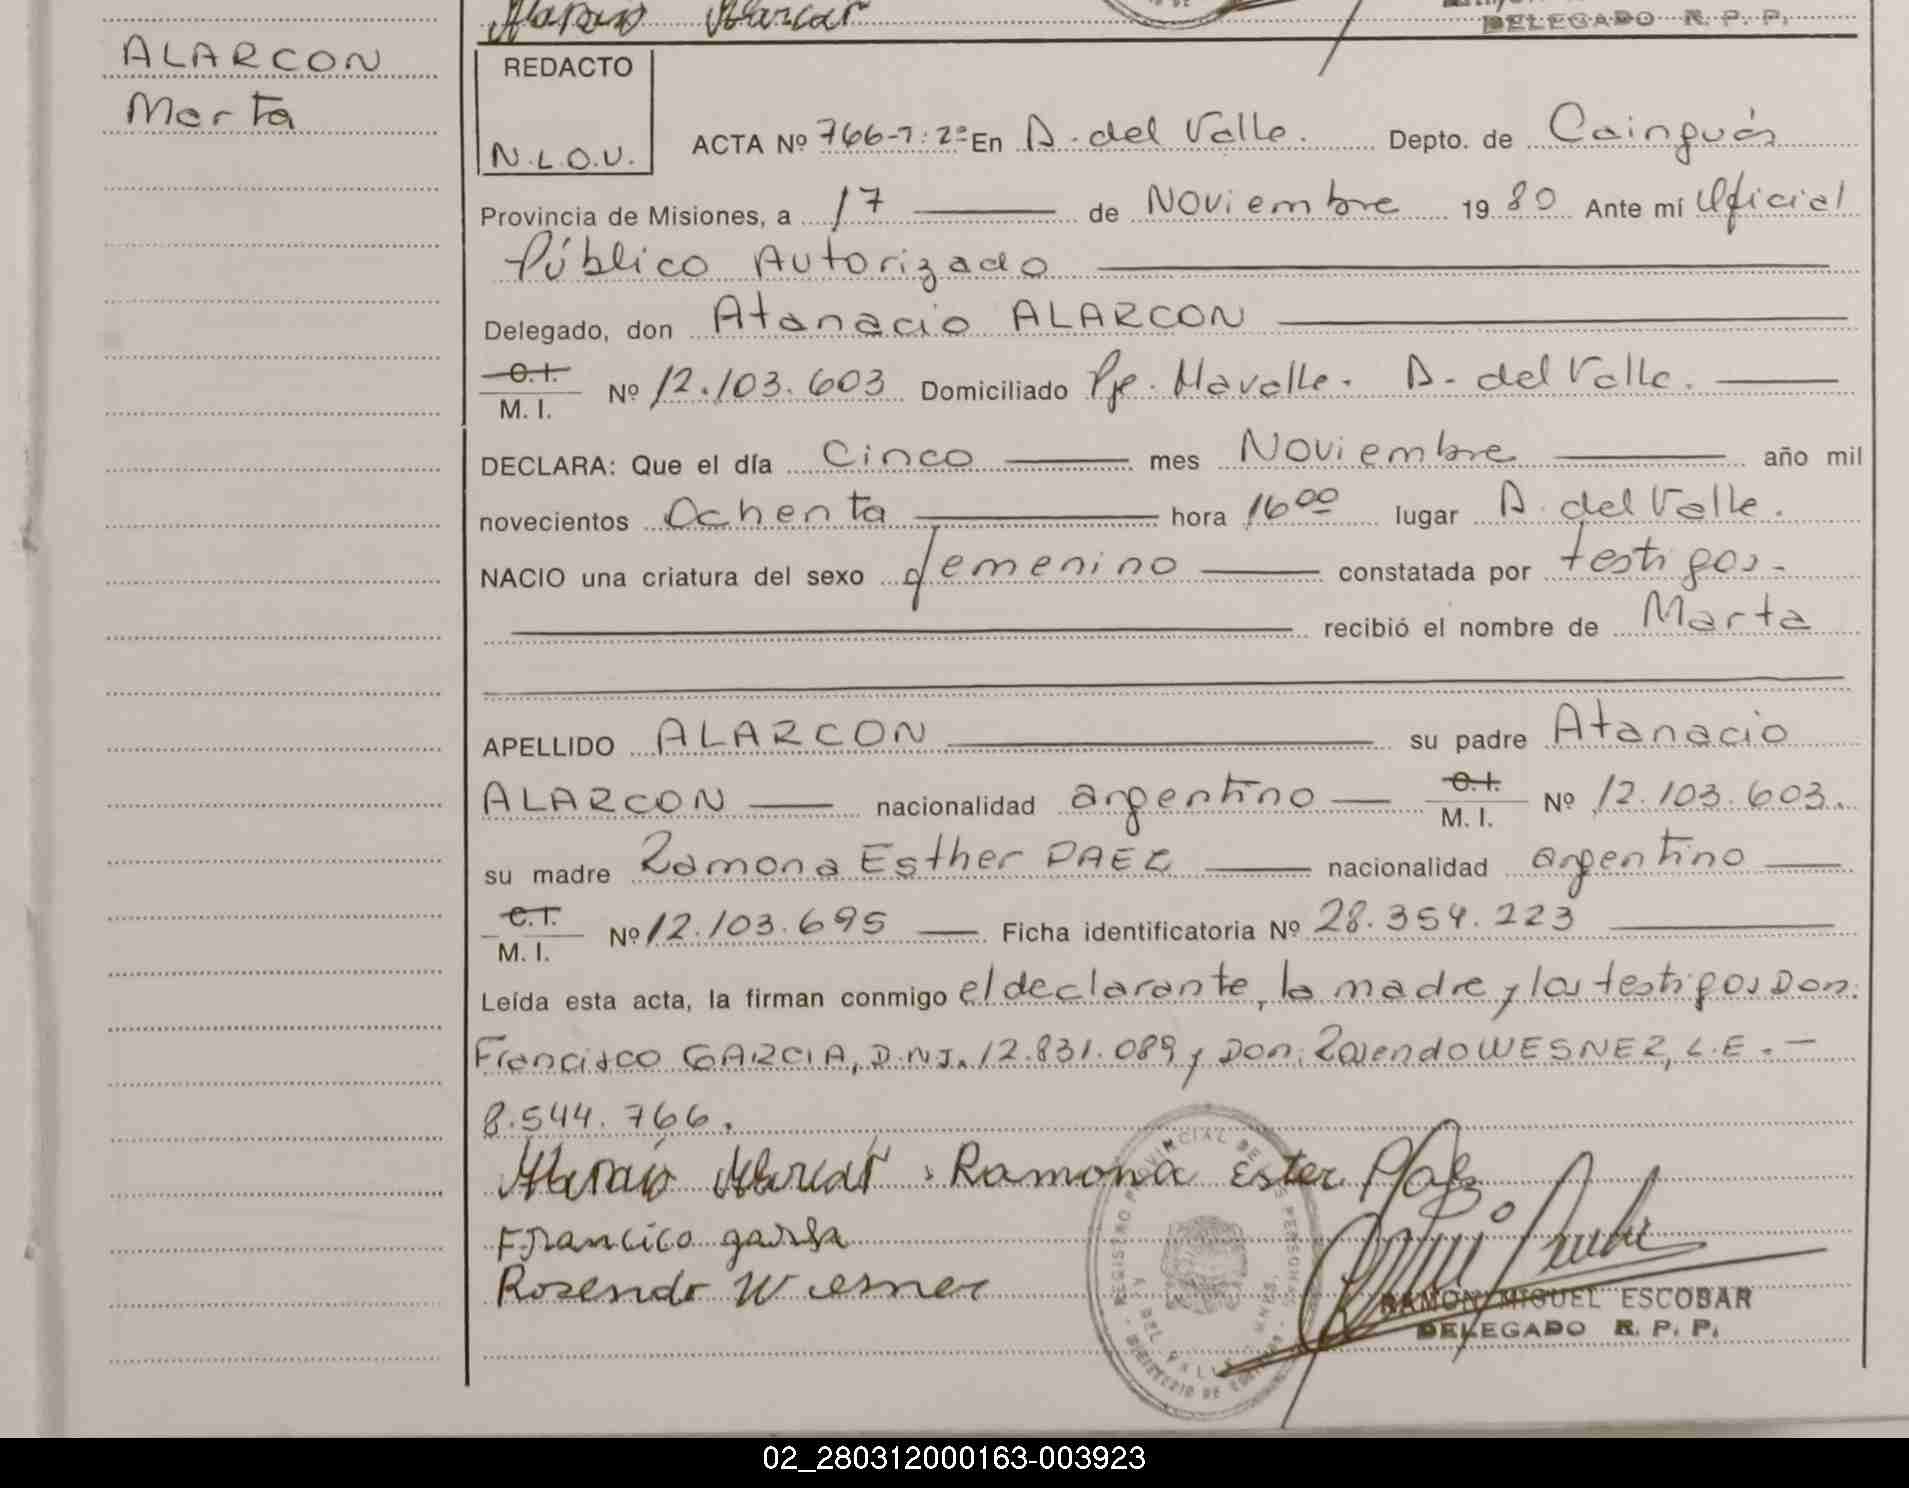 DELEGADO R. P. P.
ALARCON
Marta
REDACTO
N.L.O.U.
ACTA Nº 766-T:2º En A. del Valle. Depto. de Cainguás
Provincia de Misiones, a 17 de Noviembre 1980 Ante mí Oficial
Público Autorizado
Delegado, don Atanacio ALARCON
C.I.
M. I. Nº 12.103.603 Domiciliado Pje. Mavalle. A. del Valle.
DECLARA: Que el día Cinco mes Noviembre año mil
novecientos Ochenta hora 16 00 lugar A. del Valle.
NACIO una criatura del sexo femenino constatada por testigos.-
recibió el nombre de Marta
APELLIDO ALARCON su padre Atanacio
ALARCON nacionalidad argentino C.I. M. I. Nº 12.103.603.
su madre Ramona Esther PAEZ nacionalidad argentino
C.I.
M. I. Nº 12.103.695 Ficha identificatoria Nº 28.354.223
Leída esta acta, la firman conmigo el declarante, la madre y los testigos Don.
Francisco GARCIA, D.N.I. 12.831.089 y Don. Rosendo WESNER, L.E. -
8.544.766.
Ramona Ester Paez
Francico garsia
Rosendo Wesner
REGISTRO PROVINCIAL DE LAS PERSONAS
RAMON MIGUEL ESCOBAR
DELEGADO R. P. P.
02_280312000163-003923